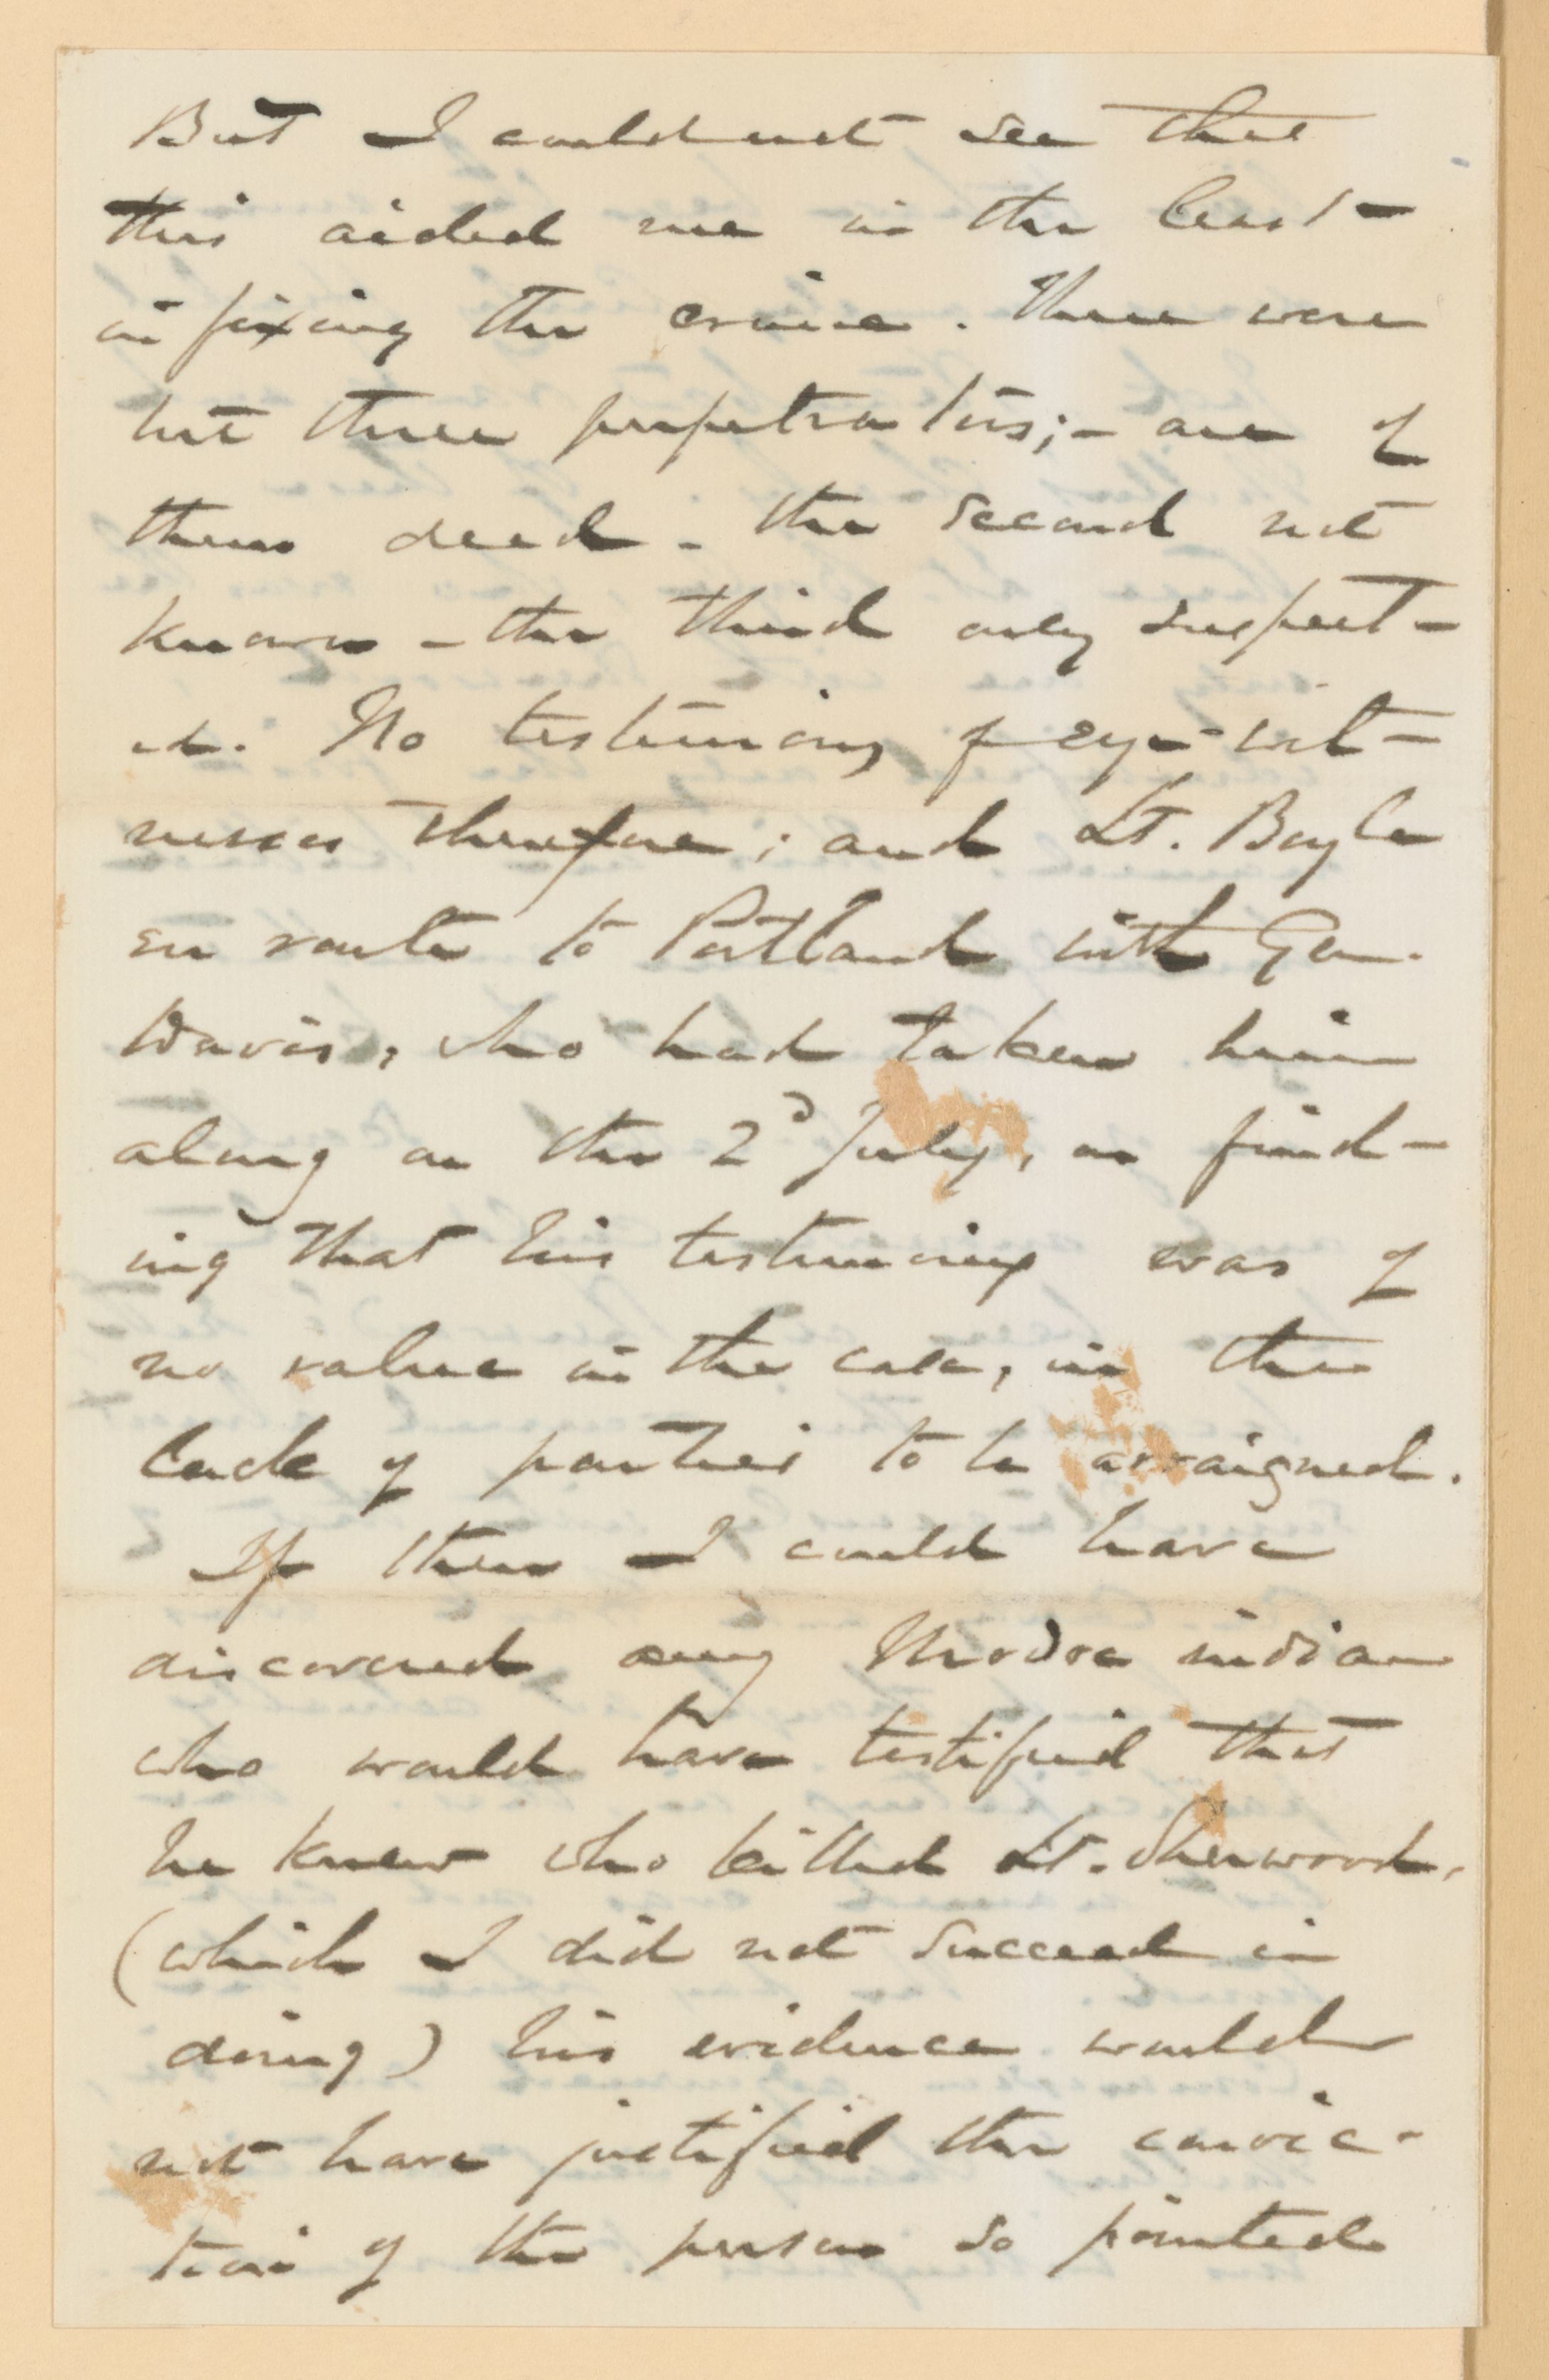 But I could not see that
this aided me in the least
in fixing the crime. There were
but three perpetrators;- one of
them dead - the second not
known - the third only suspect-
ed. No testimony of eye-wit-
nesses therefore; and Lt. Boyle
en route to Portland with Gen.
Davis, who had taken him
along on the 2d July, on find-
ing that his testimony was of
no value in the case, in the
lack of parties to be arraigned.
If then I could have
discovered any Modoc indian
who would have testified that
he knew who killed Lt. Sherwood,
(which I did not succeed in
doing) his evidence would
not have justified the convic-
tion of the person so pointed